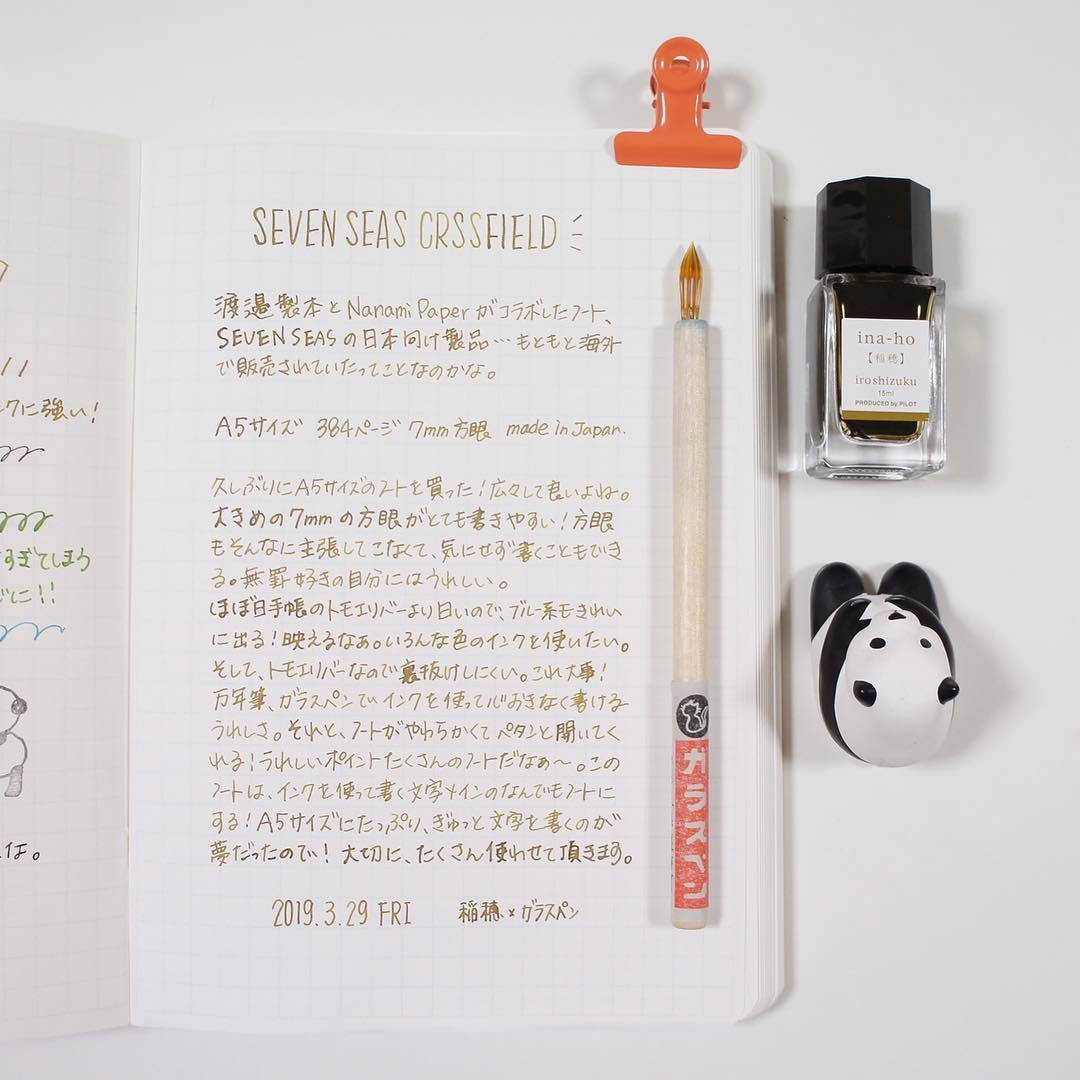 クに強い！
すぎてしまう
にに!!
な。
SEVEN SEAS CRSSFIELD
渡邉製本とNanami Paperがコラボしたノート、
SEVEN SEASの日本向け製品…もともと海外
で販売されていたってことなのかな。
A5サイズ 384ページ 7mm方眼 made in Japan.
久しぶりにA5サイズのノートを買った！広々して良いよね。
大きめの7mmの方眼がとても書きやすい！方眼
もそんなに主張してこなくて、気にせず書くこともでき
る。無罫好きの自分にはうれしい。
ほぼ日手帳のトモエリバーより白いので、ブルー系もきれい
に出る！映えるなぁ。いろんな色のインクを使いたい。
そして、トモエリバーなので裏抜けしにくい。これ大事！
万年筆、ガラスペンでインクを使って心おきなく書ける
うれしさ。それと、ノートがやわらかくてペタンと開いてく
れる！うれしいポイントたくさんのノートだなぁ〜。この
ノートは、インクを使って書く文字メインのなんでもノートに
する！A5サイズにたっぷり、ぎゅっと文字を書くのが
夢だったので！大切に、たくさん使わせて頂きます。
2019.3.29 FRI 稲穂とガラスペン
ガラスペン
ina-ho
【稲穂】
iroshizuku
15ml
PRODUCED by PILOT